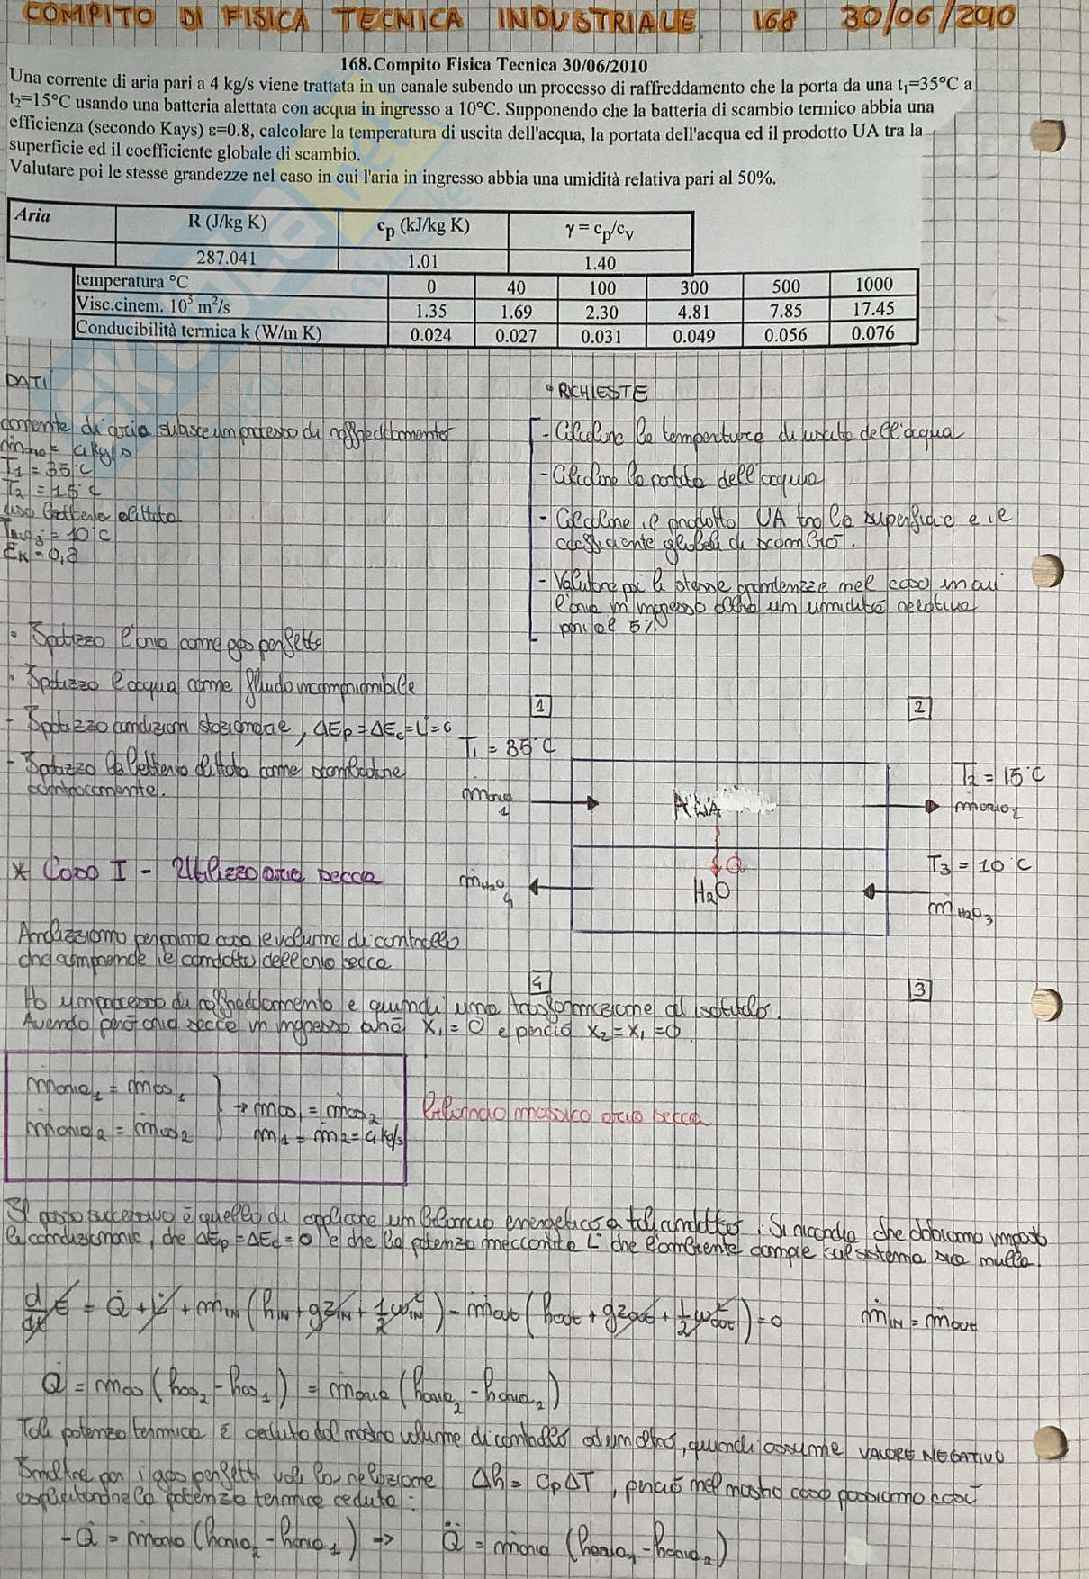 COMPITO DI FISICA TECNICA INDUSTRIALE 168 30/06/2010
168.Compito Fisica Tecnica 30/06/2010
Una corrente di aria pari a 4 kg/s viene trattata in un canale subendo un processo di raffreddamento che la porta da una t₁=35°C a
t₂=15°C usando una batteria alettata con acqua in ingresso a 10°C. Supponendo che la batteria di scambio termico abbia una
efficienza (secondo Kays) ε=0.8, calcolare la temperatura di uscita dell'acqua, la portata dell'acqua ed il prodotto UA tra la
superficie ed il coefficiente globale di scambio.
Valutare poi le stesse grandezze nel caso in cui l'aria in ingresso abbia una umidità relativa pari al 50%.
Aria R (J/kg K) cp (kJ/kg K) γ = cp/cv
287.041 1.01 1.40
temperatura °C 0 40 100 300 500 1000
Visc.cinem. 10⁵ m²/s 1.35 1.69 2.30 4.81 7.85 17.45
Conducibilità termica k (W/m K) 0.024 0.027 0.031 0.049 0.056 0.076
DATI
corrente di aria subisce un processo di raffreddamento
T₁ = 35°C
T₂ = 15°C
uso batteria alettata
= 10°C
εK = 0,8
• RICHIESTE
- Calcolare la temperatura di uscita dell'acqua
- Calcolare la portata dell'acqua
- Calcolare il prodotto UA tra la superficie e il
coefficiente globale di scambio.
- Valutare poi le stesse grandezze nel caso in cui
l'aria in ingresso abbia un umidità relativa
pari al 5%
• Ipotizzo l'aria come gas perfetto
• Ipotizzo l'acqua come fluido incomprimibile
- Ipotizzo condizioni stazionarie, ΔEp = ΔEc = L = 0
- Ipotizzo la batteria alettata come scambiatore
controcorrente.
1
T₁ = 35°C
ṁaria 1
ARIA
Q̇
H₂O
2
T₂ = 15°C
ṁaria₂
T₃ = 10°C
ṁH₂O₃
ṁH₂O 4
4
3
* Caso I - Utilizzo aria secca
Analizziamo per primo caso il volume di controllo
che comprende il condotto dell'aria secca
Ho un processo di raffreddamento e quindi una trasformazione ad isotitolo.
Avendo però aria secca in ingresso avrò X₁ = 0 e perciò X₂ = X₁ = 0
ṁaria₁ = ṁas₁
ṁaria₂ = ṁas₂
→ ṁas₁ = ṁas₂
ṁ₁ = ṁ₂ = 4 kg/s
Bilancio massico aria secca
Il passo successivo è quello di applicare un bilancio energetico a tal condotto. Si ricorda che abbiamo imposto
la condizione, che ΔEp = ΔEc = 0 e che la potenza meccanica L̇ che l'ambiente compie sul sistema sia nulla.
d/dt E = Q̇ + L̇ + ṁIN (hIN + gzIN + 1/2 w²IN) - ṁout (hout + gzout + 1/2 w²out) = 0 ṁIN = ṁout
Q̇ = ṁas (has₂ - has₁) = ṁaria (haria₂ - haria₂)
Tale potenza termica è ceduta dal nostro volume di controllo ad un altro, quindi assume VALORE NEGATIVO
Inoltre per i gas perfetti vale la relazione Δh = cpΔT, perciò nel nostro caso possiamo così
esplicitandola potenza termica ceduta:
-Q̇ = ṁaria (haria₂ - haria₁) → Q̇ = ṁaria (haria₁ - haria₂)